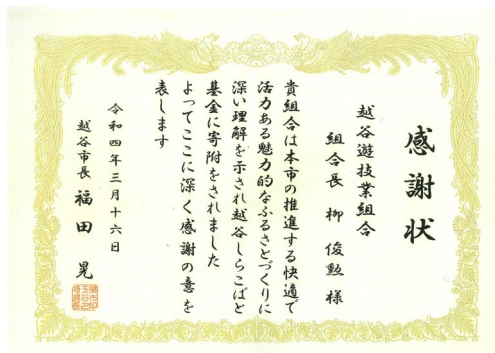 感謝状
越谷遊技業組合
組合長 柳 俊勲 様
貴組合は本市の推進する快適で
活力ある魅力的なふるさとづくりに
深い理解を示され越谷しらこばと
基金に寄附をされました
よってここに深く感謝の意を
表します
令和四年三月十六日
越谷市長 福田 晃